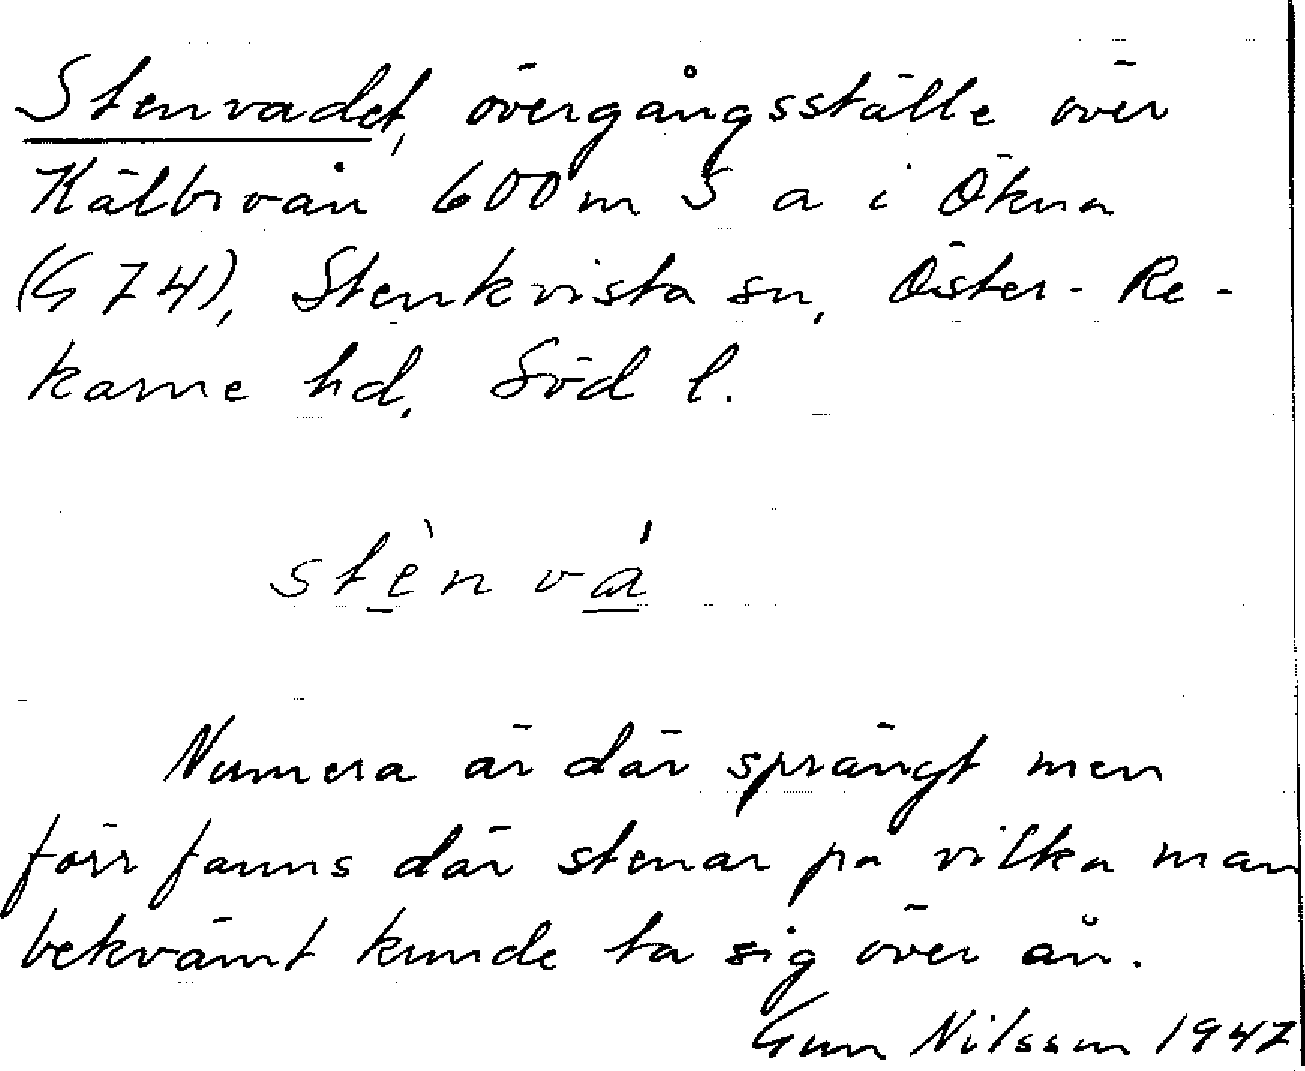 Stenvadet, övergångsställe över
Kälbroån 600 m S a i Ökna
(G 74), Stenkvista sn, Öster-Re-
karne hd, Söd l.
stènvá
Numera är där sprängt men
förr fanns där stenar på vilka man
bekvämt kunde ta sig över ån.
Gun Nilsson 1947